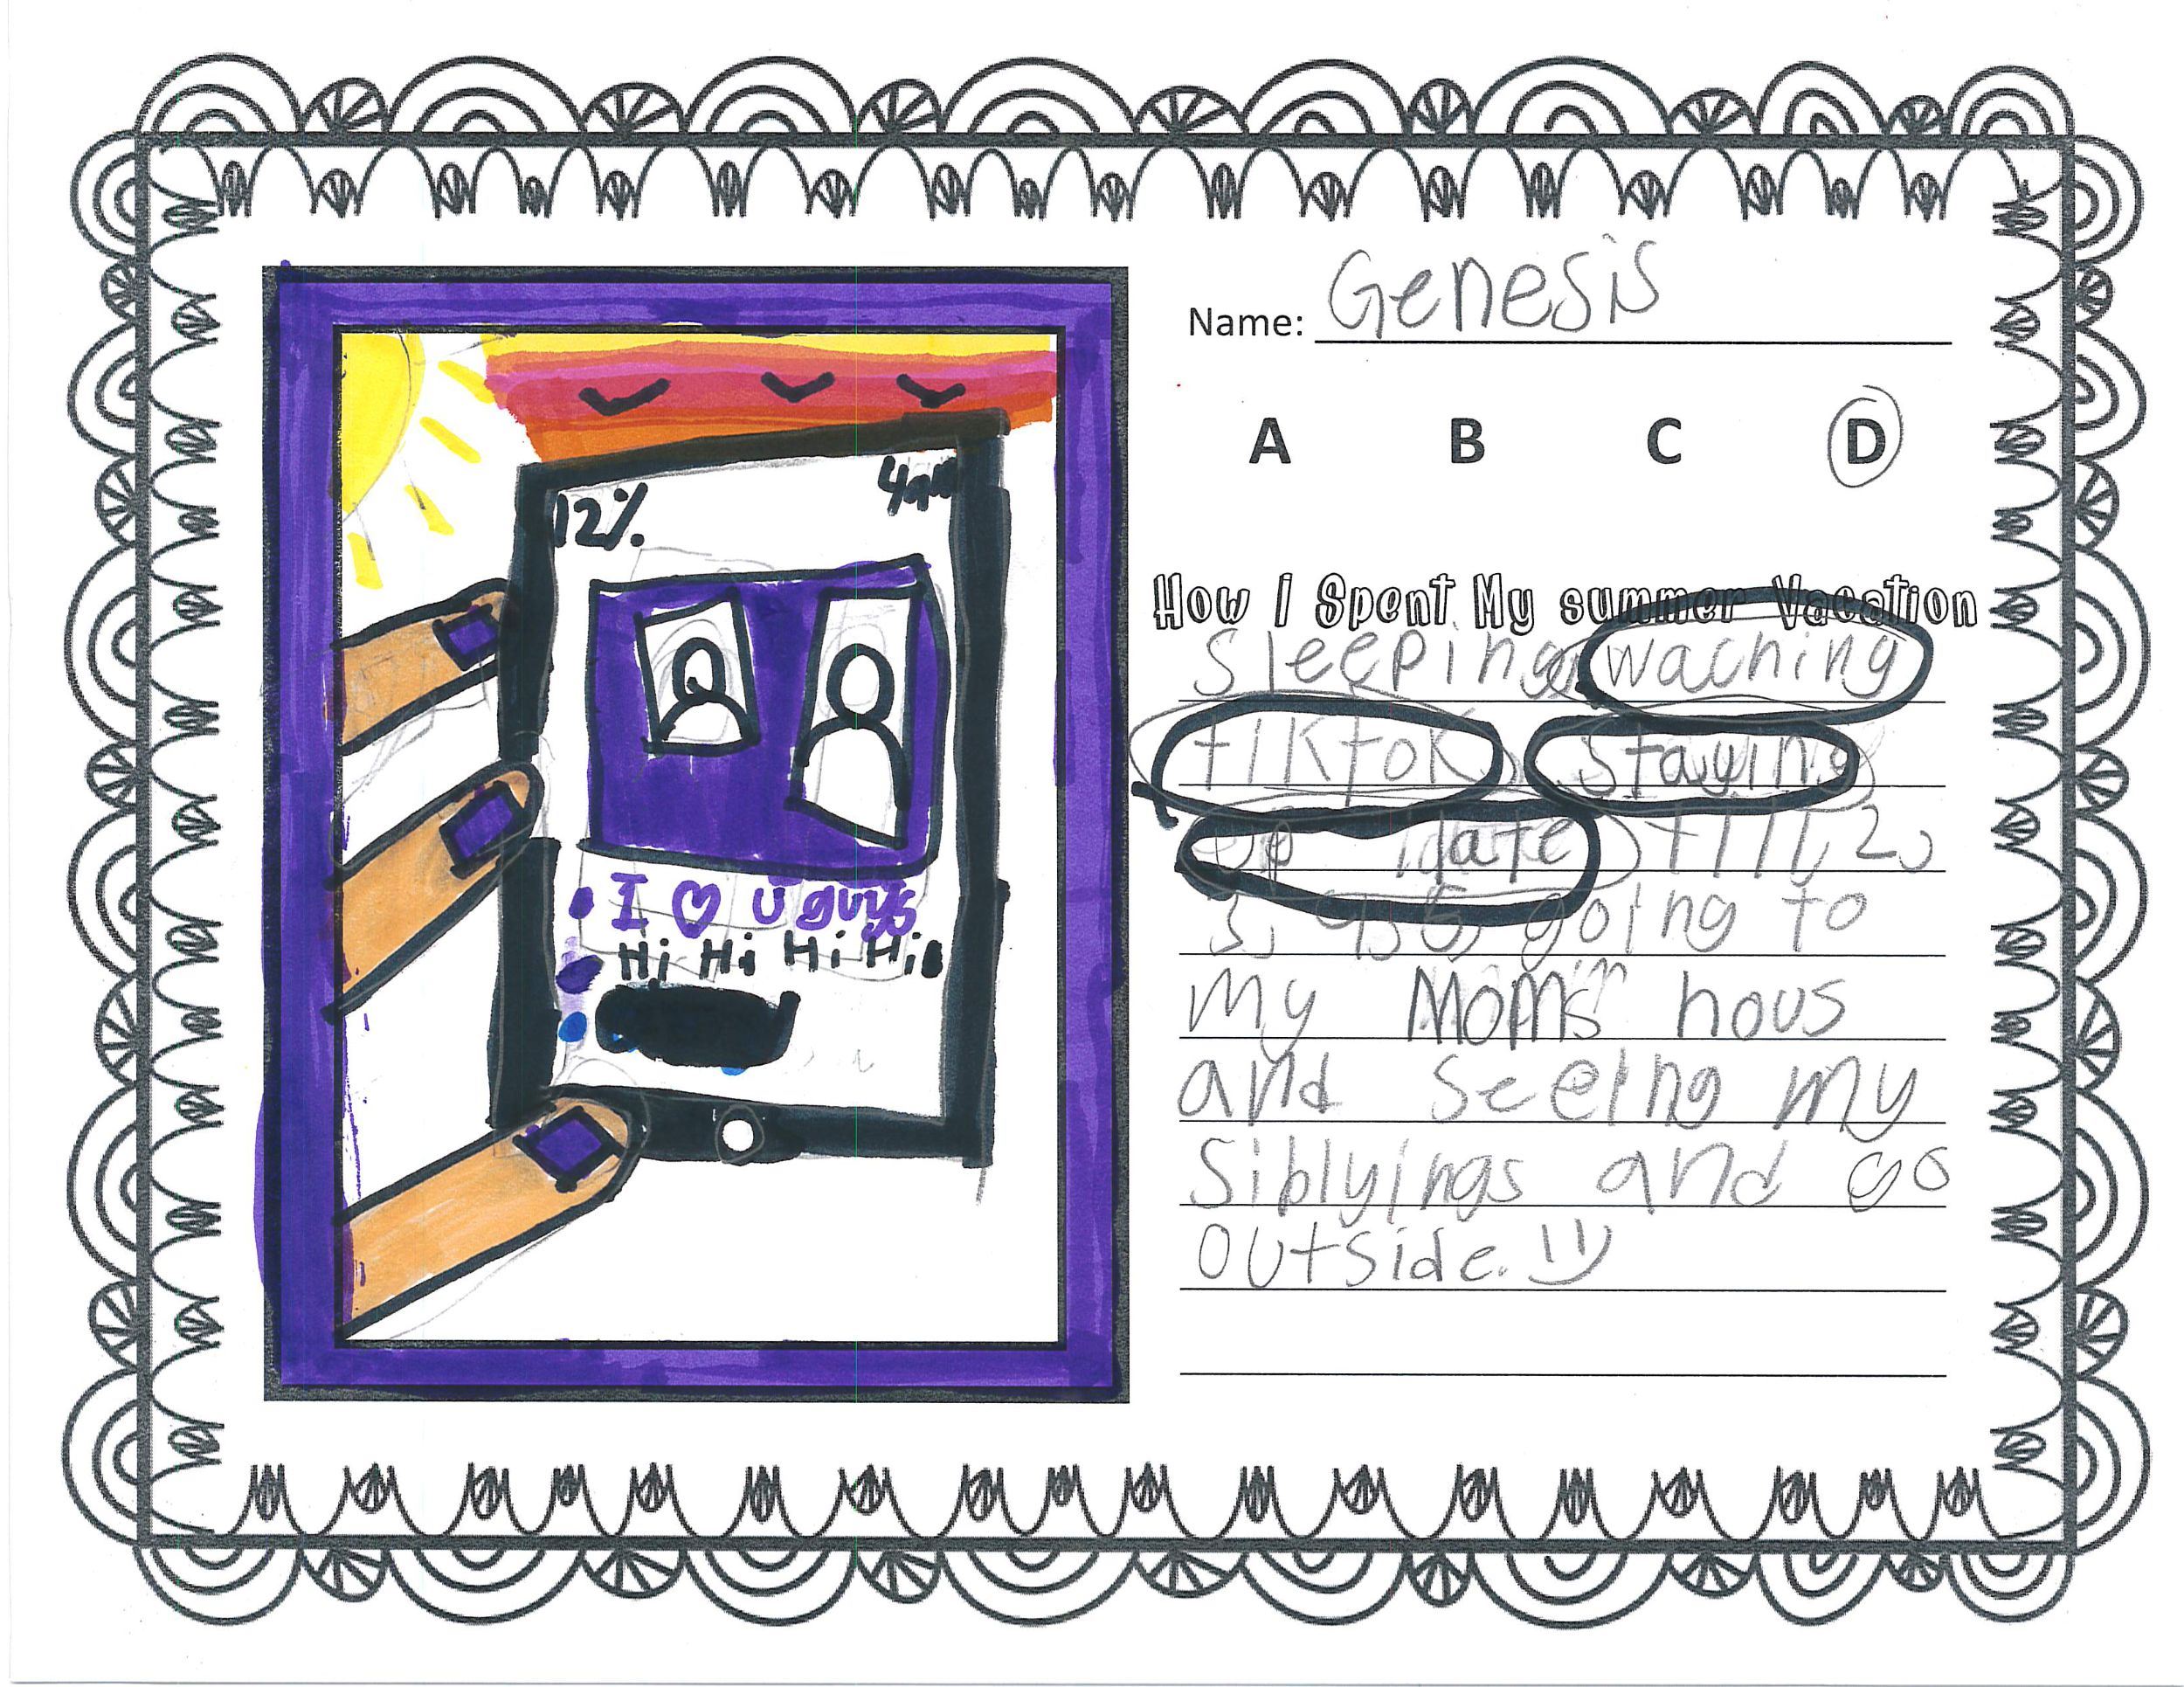 Name: Genesis
A B C D
How I Spent My summer Vacation
sleeping, waching
tiktok, staying
up late till, 2,
3, 4, 5, going to
my Moms hous
and seeing my
Siblyings and go
outside.
12%
I ♡ u guys
Hi Hi Hi Hi